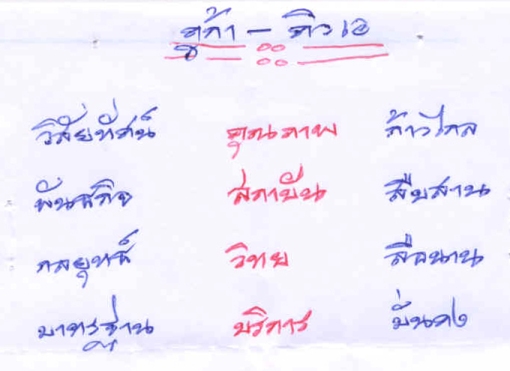 คูก้า - คิวเอ
วิสัยทัศน์ คุณภาพ ก้าวไกล
พันธกิจ สถาบัน สืบสาน
กลยุทธ์ วิทย ลือนาน
มาตรฐาน บริการ มั่นคง